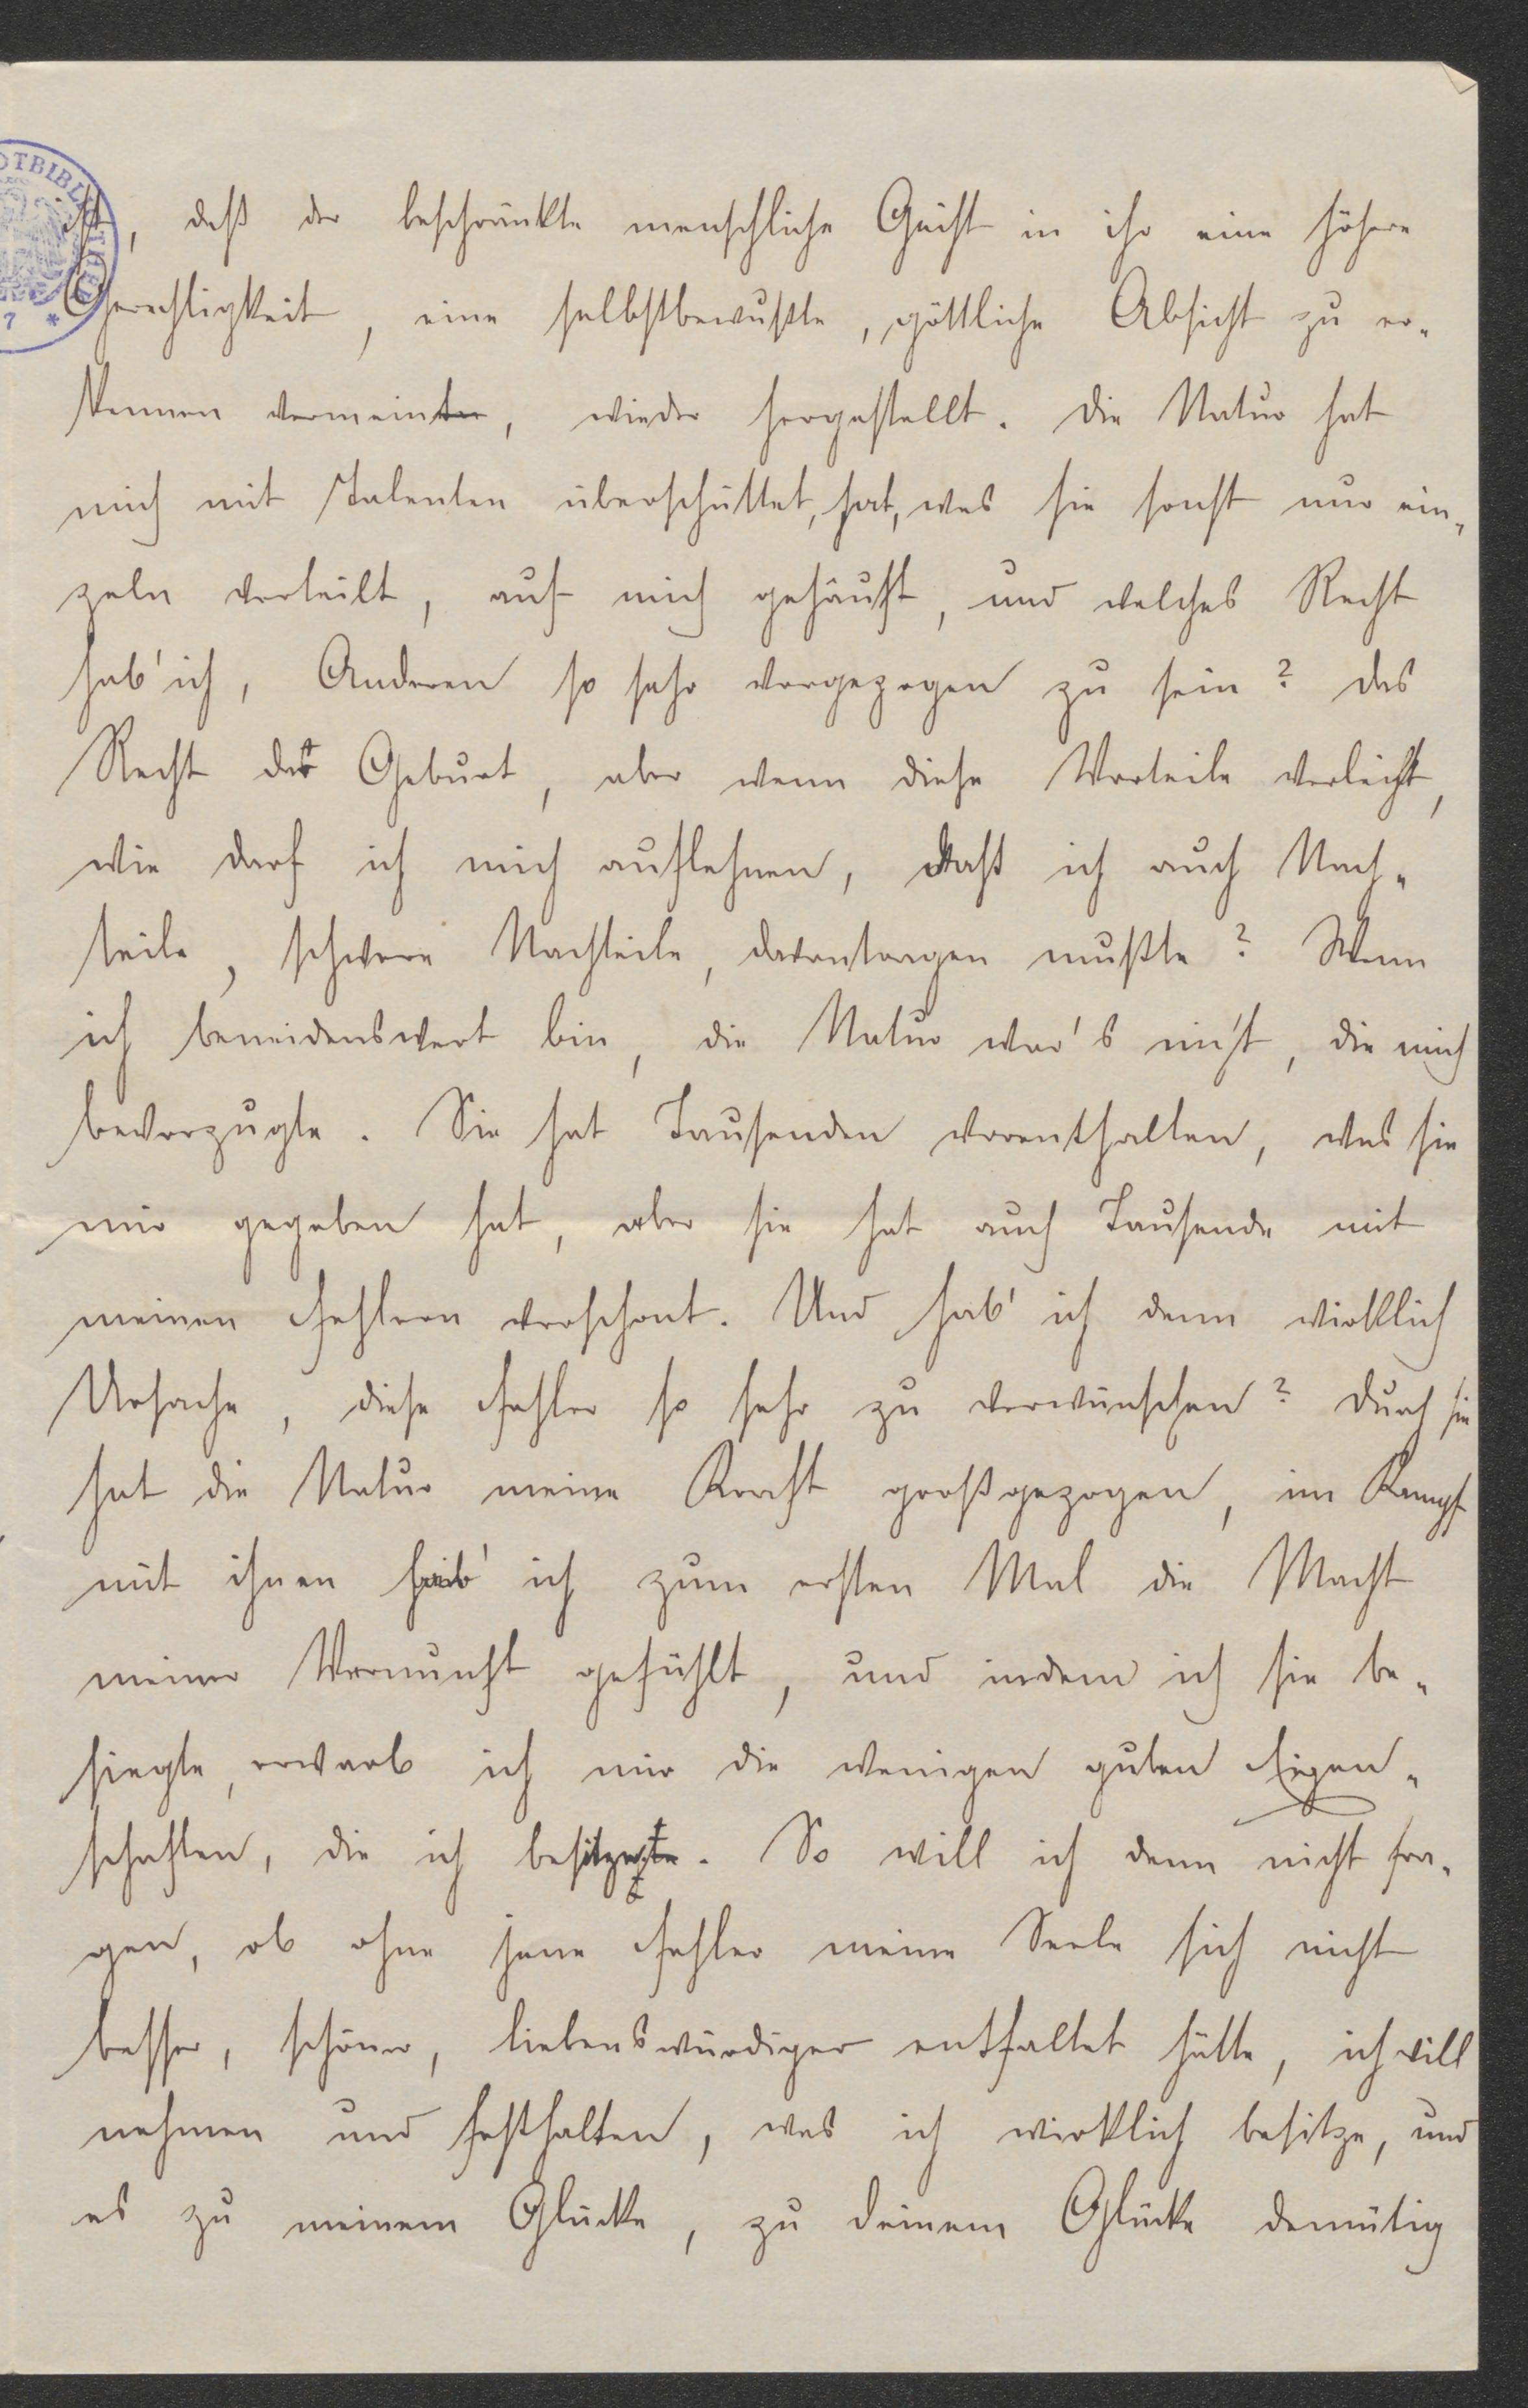 ist, daß der beschränkte menschliche Geist in ihr eine höhere
Gerechtigkeit, eine selbstbewußte, göttliche Absicht zu er-
kennen vermeinte, wieder hergestellt. Die Natur hat
mich mit Talenten überschüttet, hat, was sie sonst nur ein-
zeln verteilt, auf mich gehäuft, und welches Recht
hab' ich, Anderen so sehr vorgezogen zu sein? Das
Recht der Geburt, aber wenn diese Vorteile verleiht,
wie darf ich mich auflehnen, daß ich auch Nach-
teile, schwere Nachteile, davontragen mußte? Wenn
ich beneidenswert bin, die Natur war's nicht, die mich
bevorzugte. Sie hat Tausenden vorenthalten, was sie
mir gegeben hat, aber sie hat auch Tausende mit
meinen Fehlern verschont. Und hab' ich denn wirklich
Ursache, diese Fehler so sehr zu verwünschen? Durch sie
hat die Natur meine Kraft großgezogen, im Kampf
mit ihnen hab' ich zum ersten Mal die Macht
meiner Vernunft gefühlt, und indem ich sie be-
siegte, erwarb ich mir die wenigen guten Eigen-
schaften, die ich besitze. So will ich denn nicht fra-
gen, ob ohne jene Fehler meine Seele sich nicht
besser, schöner, liebenswürdiger entfaltet hätte, ich will
nehmen und festhalten, was ich wirklich besitze, und
es zu meinem Glücke, zu deinem Glücke demütig